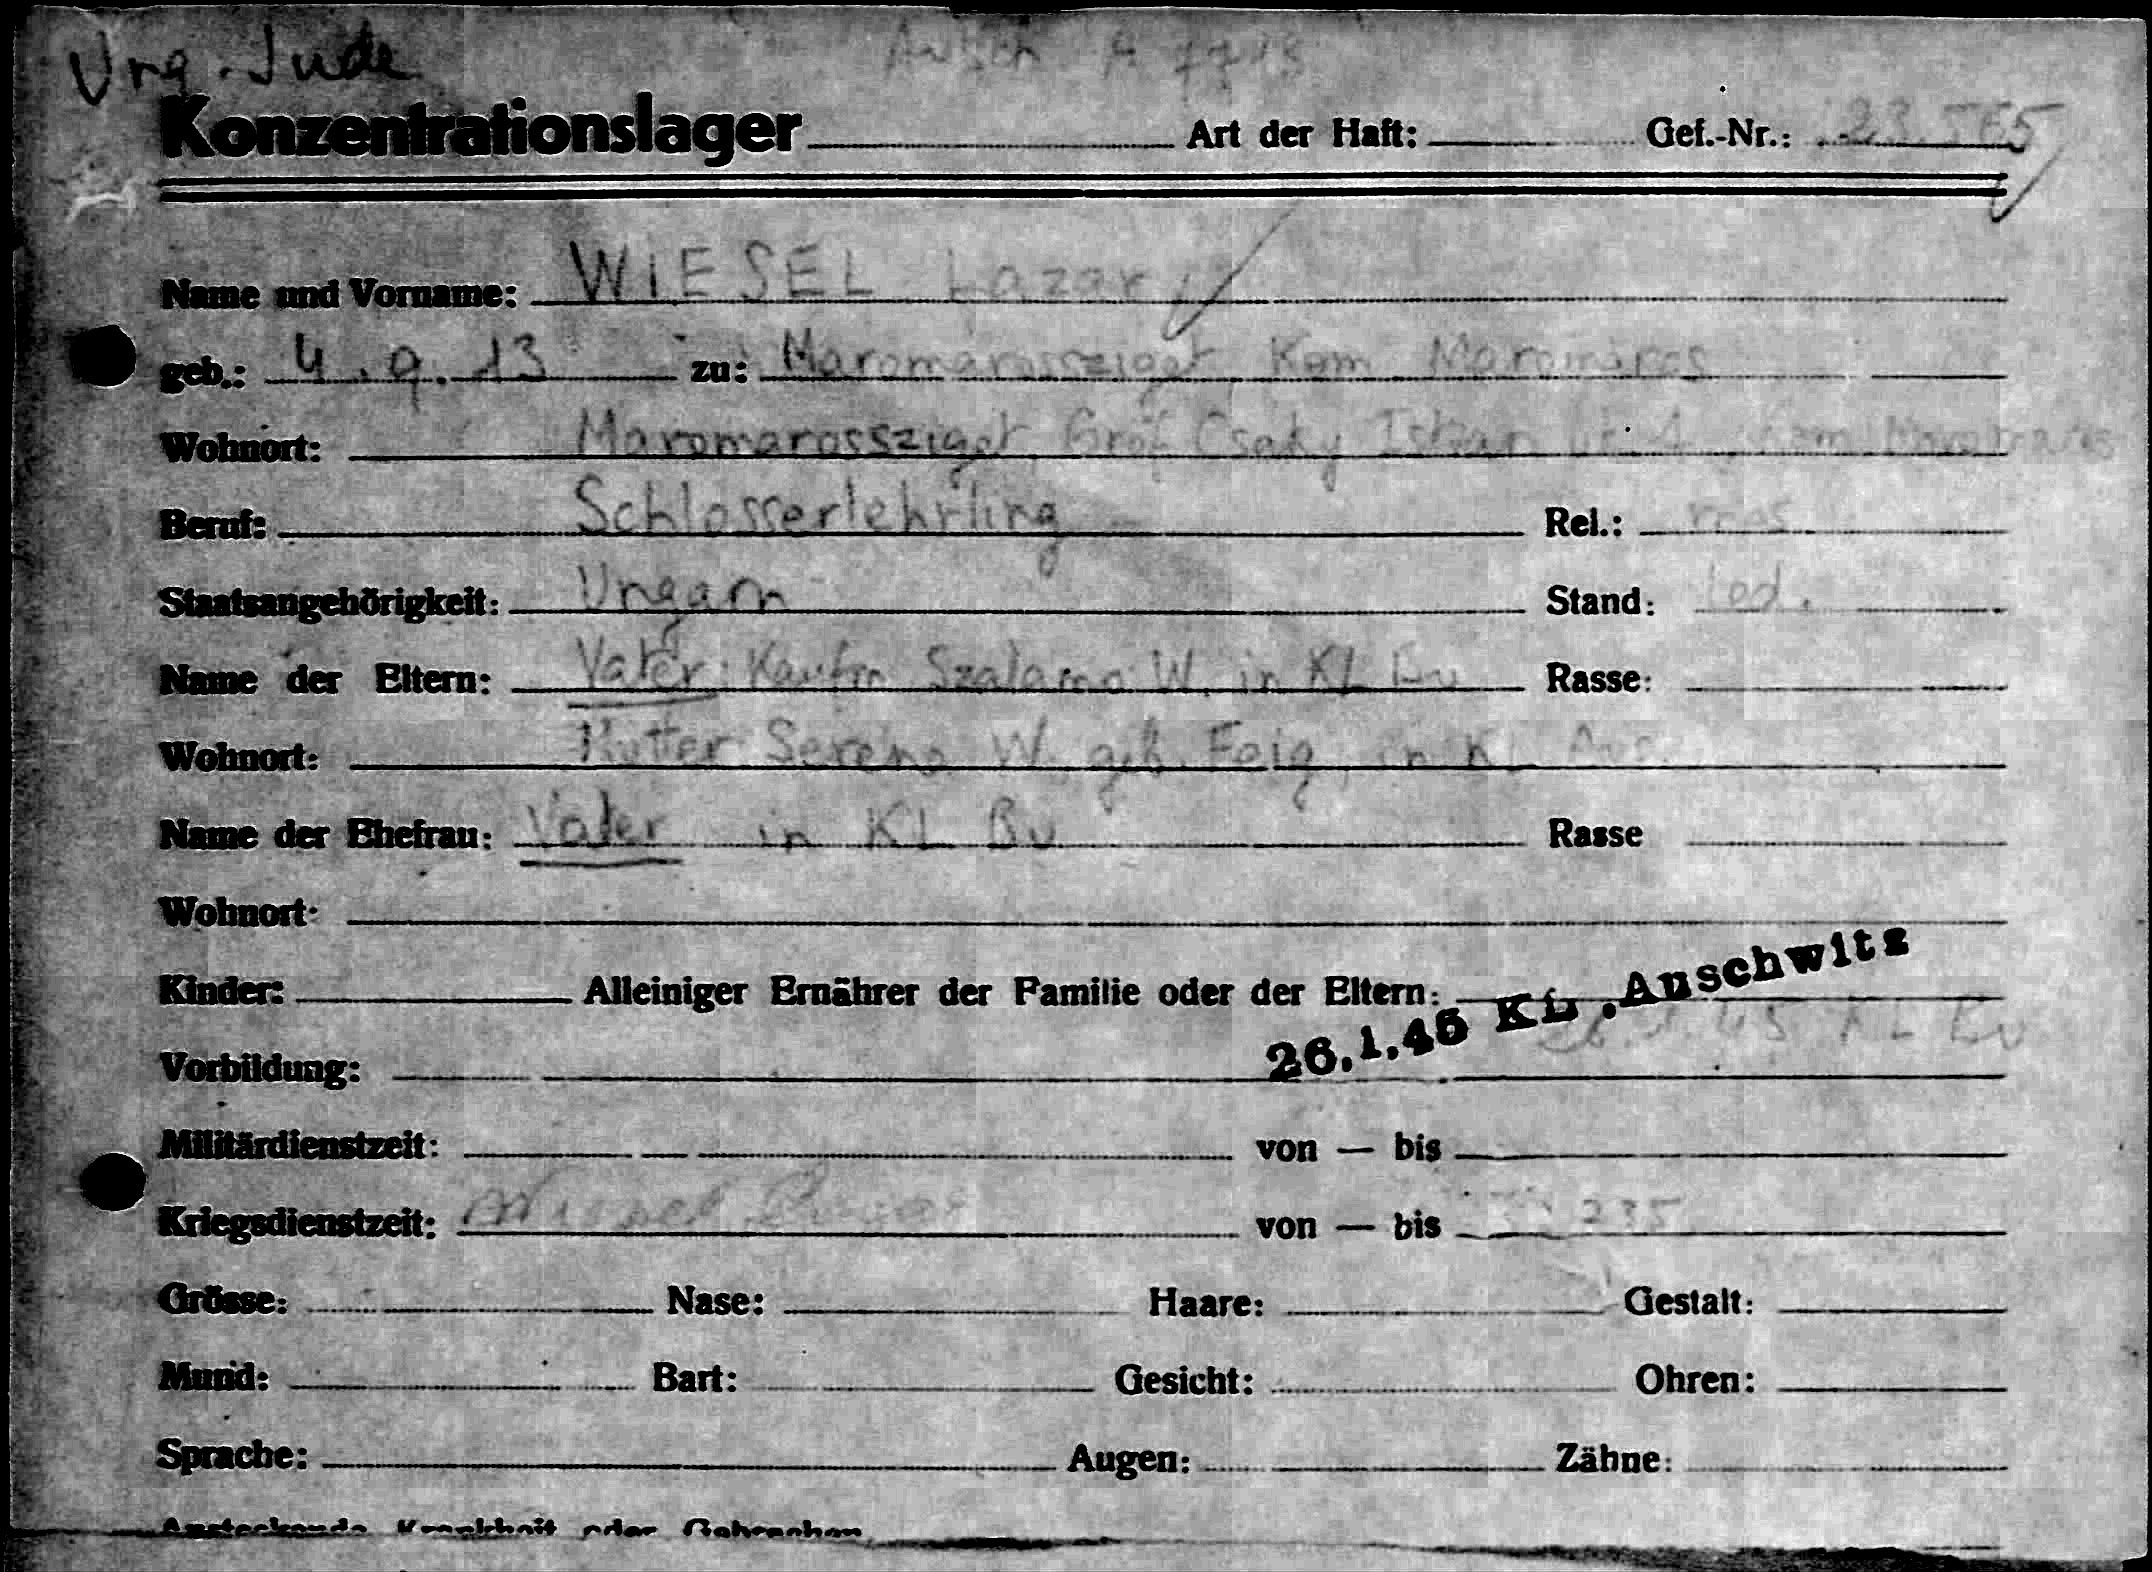 Ung. Jude Ausch A 7713
Konzentrationslager Art der Haft: Gef.-Nr.: 23.565
Name und Vorname: WIESEL Lazar
geb.: 4.9.13 zu: Maromarossziget Kom Maromaros
Wohnort: Maromarossziget Grof Csaky Istvan
Beruf: Schlosserlehrling Rel.: mos
Staatsangehörigkeit: Ungarn Stand: led.
Name der Eltern: Vater: Kaufm Szalamo W. in KL Bu Rasse:
Wohnort: Mutter Serena W. geb. Feig, in KL Aus.
Name der Ehefrau: Vater in KL Bu Rasse
Wohnort:
Kinder: Alleiniger Ernährer der Familie oder der Eltern:
26.1.45 KL.Auschwitz
26.1.45 KL Bu
Vorbildung:
Militärdienstzeit: von — bis
Kriegsdienstzeit: von — bis
Grösse: Nase: Haare: Gestalt:
Mund: Bart: Gesicht: Ohren:
Sprache: Augen: Zähne:
Ansteckende Krankheit oder Gebrechen